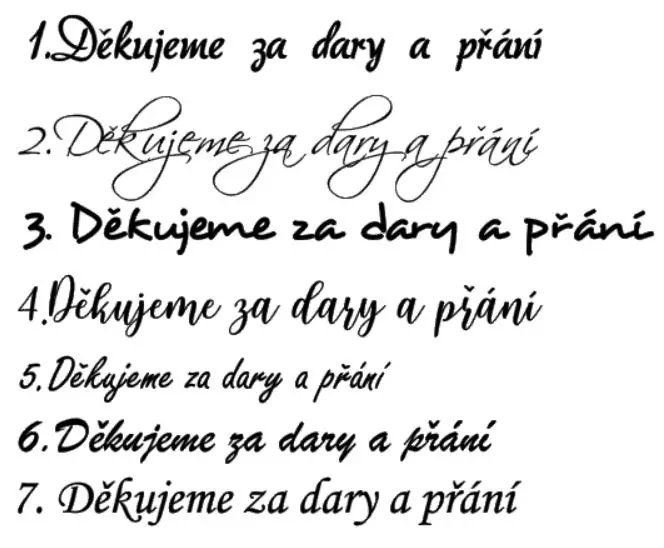 1.Děkujeme za dary a přání
2.Děkujeme za dary a přání
3. Děkujeme za dary a přání
4.Děkujeme za dary a přání
5.Děkujeme za dary a přání
6.Děkujeme za dary a přání
7. Děkujeme za dary a přání